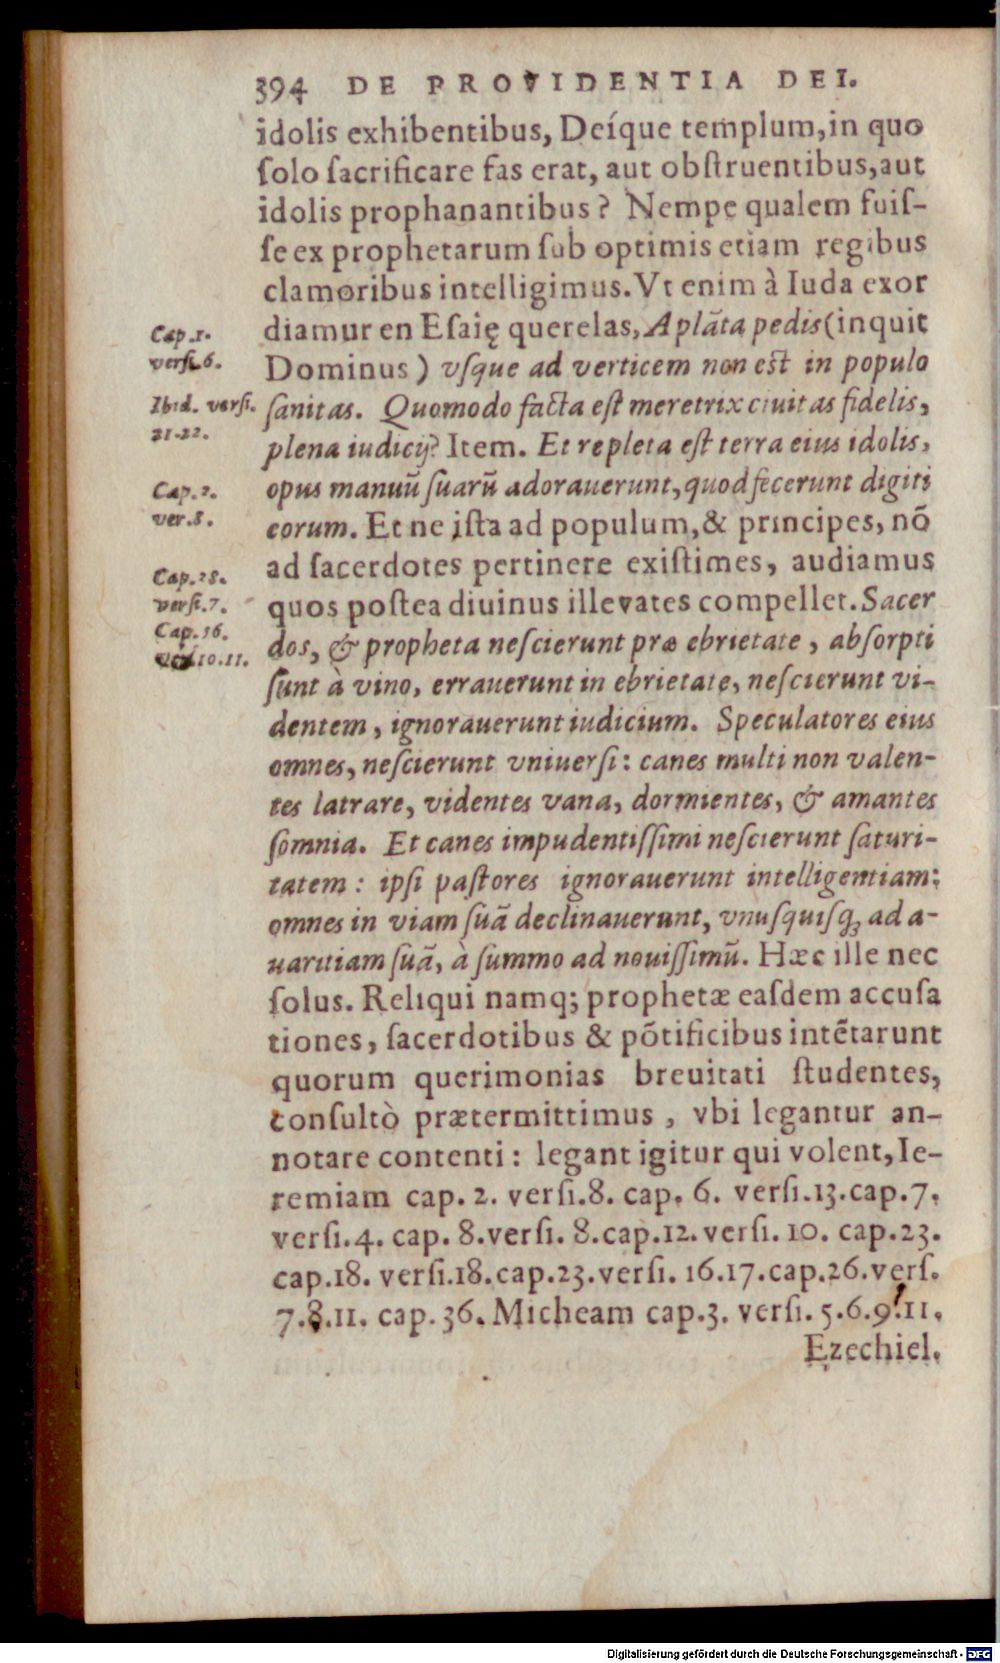 394 DE PROVIDENTIA DEI.
idolis exhibentibus, Deíque templum, in quo
ſolo ſacrificare fas erat, aut obſtruentibus, aut
idolis prophanantibus? Nempe qualem fuiſ-
ſe ex prophetarum ſub optimis etiam regibus
clamoribus intelligimus. Vt enim à Iuda exor
diamur en Eſaię querelas, A plāta pedis (inquit
Dominus) vſque ad verticem non eſt in populo
ſanitas. Quomodo facta eſt meretrix ciuitas fidelis,
plena iudicij? Item. Et repleta eſt terra eius idolis,
opus manuū ſuarū adorauerunt, quod fecerunt digiti
eorum. Et ne iſta ad populum, & principes, nō
ad ſacerdotes pertinere exiſtimes, audiamus
quos poſtea diuinus ille vates compellet. Sacer
dos, & propheta neſcierunt præ ebrietate, abſorpti
ſunt à vino, errauerunt in ebrietate, neſcierunt vi-
dentem, ignorauerunt iudicium. Speculatores eius
omnes, neſcierunt vniuerſi: canes multi non valen-
tes latrare, videntes vana, dormientes, & amantes
ſomnia. Et canes impudentiſſimi neſcierunt ſaturi-
tatem: ipſi paſtores ignorauerunt intelligentiam:
omnes in viam ſuā declinauerunt, vnuſquiſq; ad a-
uaritiam ſuā, à ſummo ad nouiſſimū. Hæc ille nec
ſolus. Reliqui namq; prophetæ eaſdem accuſa
tiones, ſacerdotibus & pōtificibus intētarunt
quorum querimonias breuitati ſtudentes,
conſultò prætermittimus, vbi legantur an-
notare contenti: legant igitur qui volent, Ie-
remiam cap. 2. verſi. 8. cap. 6. verſi. 13. cap. 7.
verſi. 4. cap. 8. verſi. 8. cap. 12. verſi. 10. cap. 23.
cap. 18. verſi. 18. cap. 23. verſi. 16. 17. cap. 26. verſ.
7. 8. 11. cap. 36. Micheam cap. 3. verſi. 5. 6. 9. 11.
Ezechiel.
Cap. 1.
verſi. 6.
Ibid. verſi.
21. 22.
Cap. 2.
ver. 8.
Cap. 28.
verſi. 7.
Cap. 56.
10. 11.
Digitalisierung gefördert durch die Deutsche Forschungsgemeinschaft - DFG